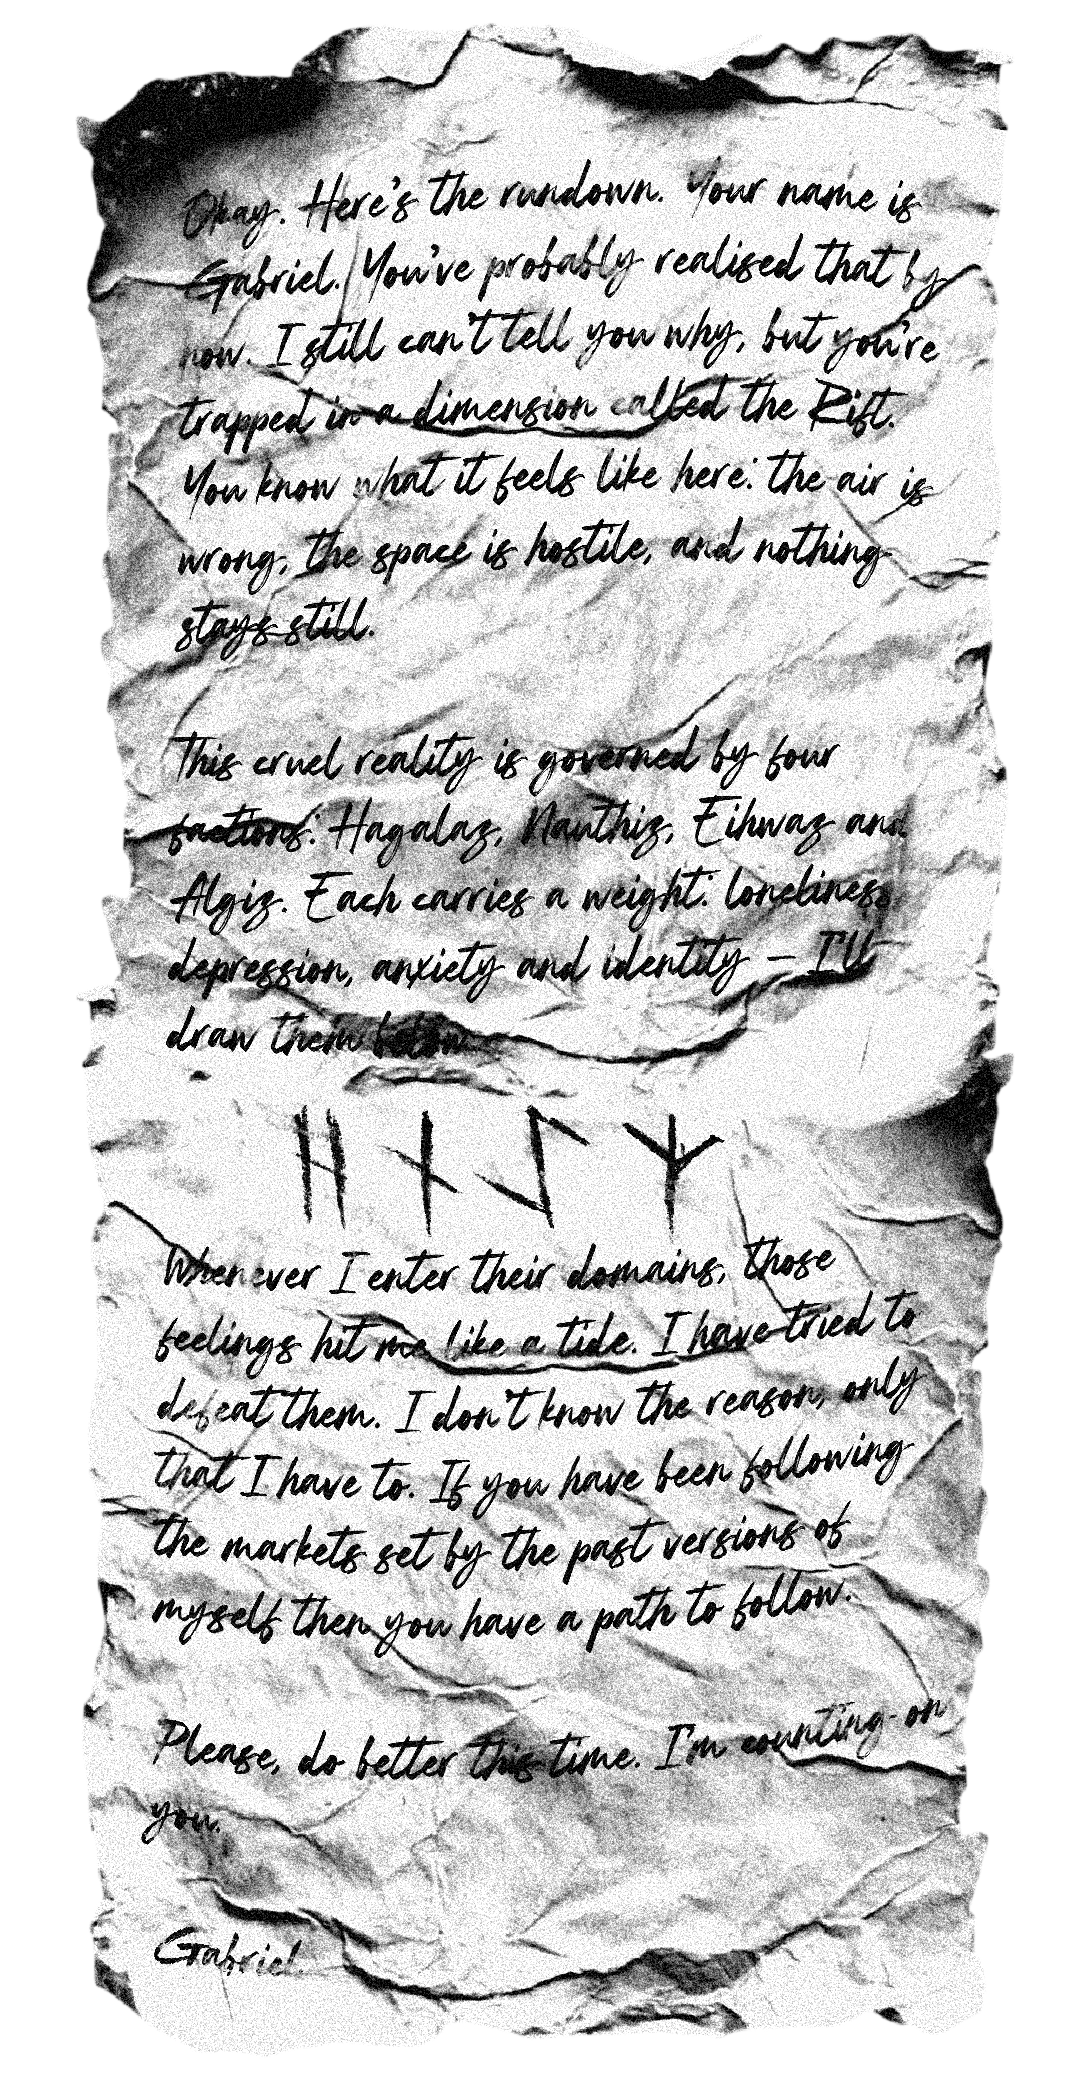 Okay. Here's the rundown. Your name is
Gabriel. You've probably realised that by
now. I still can't tell you why, but you're
trapped in a dimension called the Rift.
You know what it feels like here: the air is
wrong, the space is hostile, and nothing
stays still.
This cruel reality is governed by four
factions: Hagalaz, Nauthiz, Eihwaz and
Algiz. Each carries a weight: loneliness,
depression, anxiety and identity – I'll
draw them below.
ᚺ ᚾ ᛇ ᛉ
Whenever I enter their domains, those
feelings hit me like a tide. I have tried to
defeat them. I don't know the reason, only
that I have to. If you have been following
the markets set by the past versions of
myself then you have a path to follow.
Please, do better this time. I'm counting on
you.
Gabriel.